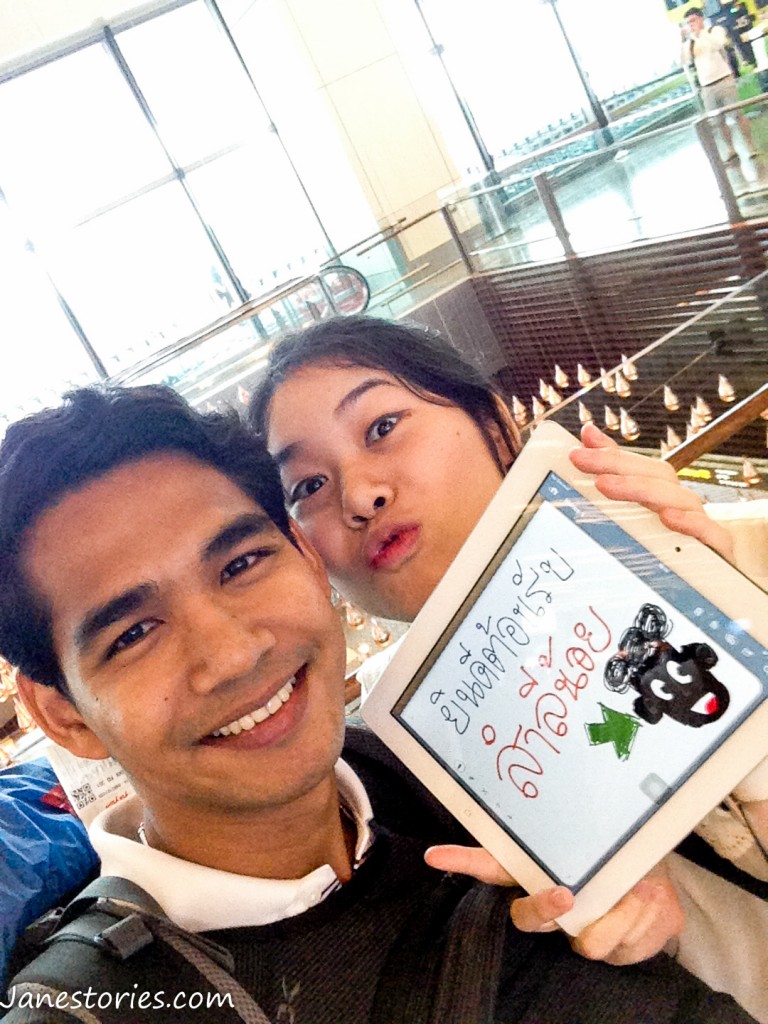 ยินดีต้อนรับ
สำลีน้อย
Janestories.com